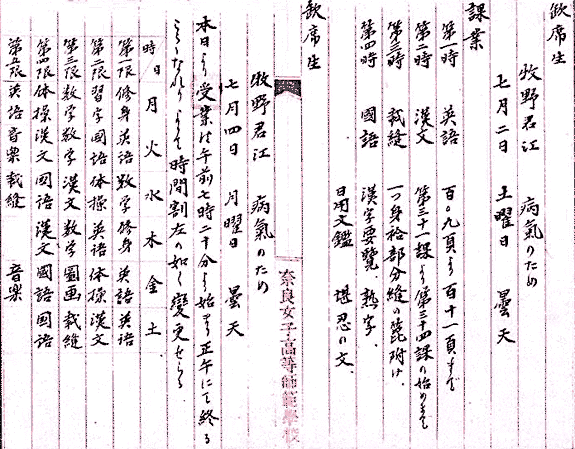 欠席生
牧野君江 病氣のため
七月二日 土曜日 曇天
課業
第一時 英語 百〇九頁より百十一頁まで
第二時 漢文 第三十一課より第三十四課の始めまで
第三時 裁縫 一つ身袷部分縫の箆附け、
第四時 國語 漢字要覧、熟字、
日用文鑑 堪忍の文、
欠席生
牧野君江 病氣のため
七月四日 月曜日 曇天
奈良女子高等師範學校
本日より受業は午前七時二十分より始まり正午にて終る
ことゝなれり よりて時間割左の如く變更せらる
時日 月 火 水 木 金 土
第一限 修身 英語 数学 修身 英語 英語
第二限 習字 國語 体操 英語 体操 漢文
第三限 数学 数学 漢文 数学 圖画 裁縫
第四限 体操 漢文 國語 漢文 國語 國語
第五限 英語 音楽 裁縫 音楽